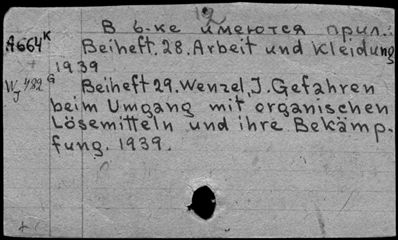 12
В б-ке имеются прил.:
A664K Beiheft. 28. Arbeit und Kleidung
1939
WJ 482G Beiheft 29. Wenzel, J. Gefahren
beim Umgang mit organischen
Lösemitteln und ihre Bekämp-
fung. 1939.